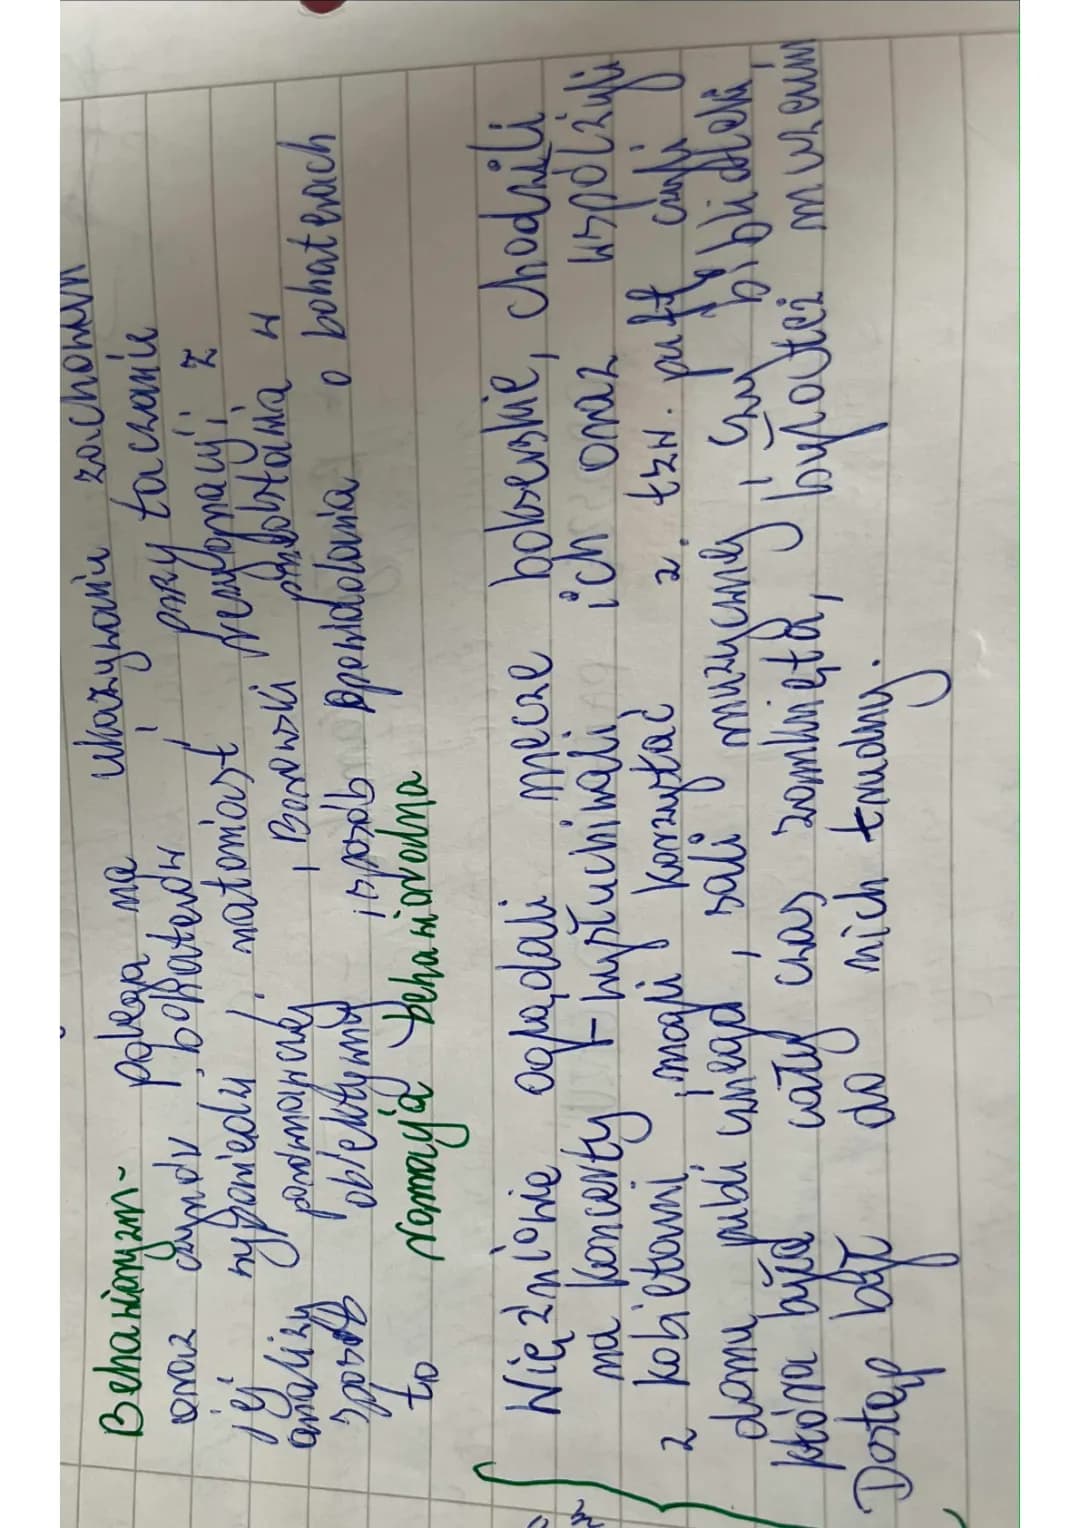 Behawioryzm- polega na ukazywaniu zachowań
oraz czynów bohaterów i przy taczanie
jej wypowiedzi, natomiast rezygnacji z
analizy Borowski przedstawia w
sposób obiektywny i sposób opowiadania o bohaterach
to narracja behawioralna
Więźniowie oglądali mecze bokserskie, chodzili
na koncerty i wysłuchiwali ich oraz współżyli
z kobietami, mogli korzystać z tzw. puff czyli
domu publicznego, sali muzycznej i czy biblioteki
która była cały czas zamknięta, był też muzeum
Dostęp był do nich trudny.